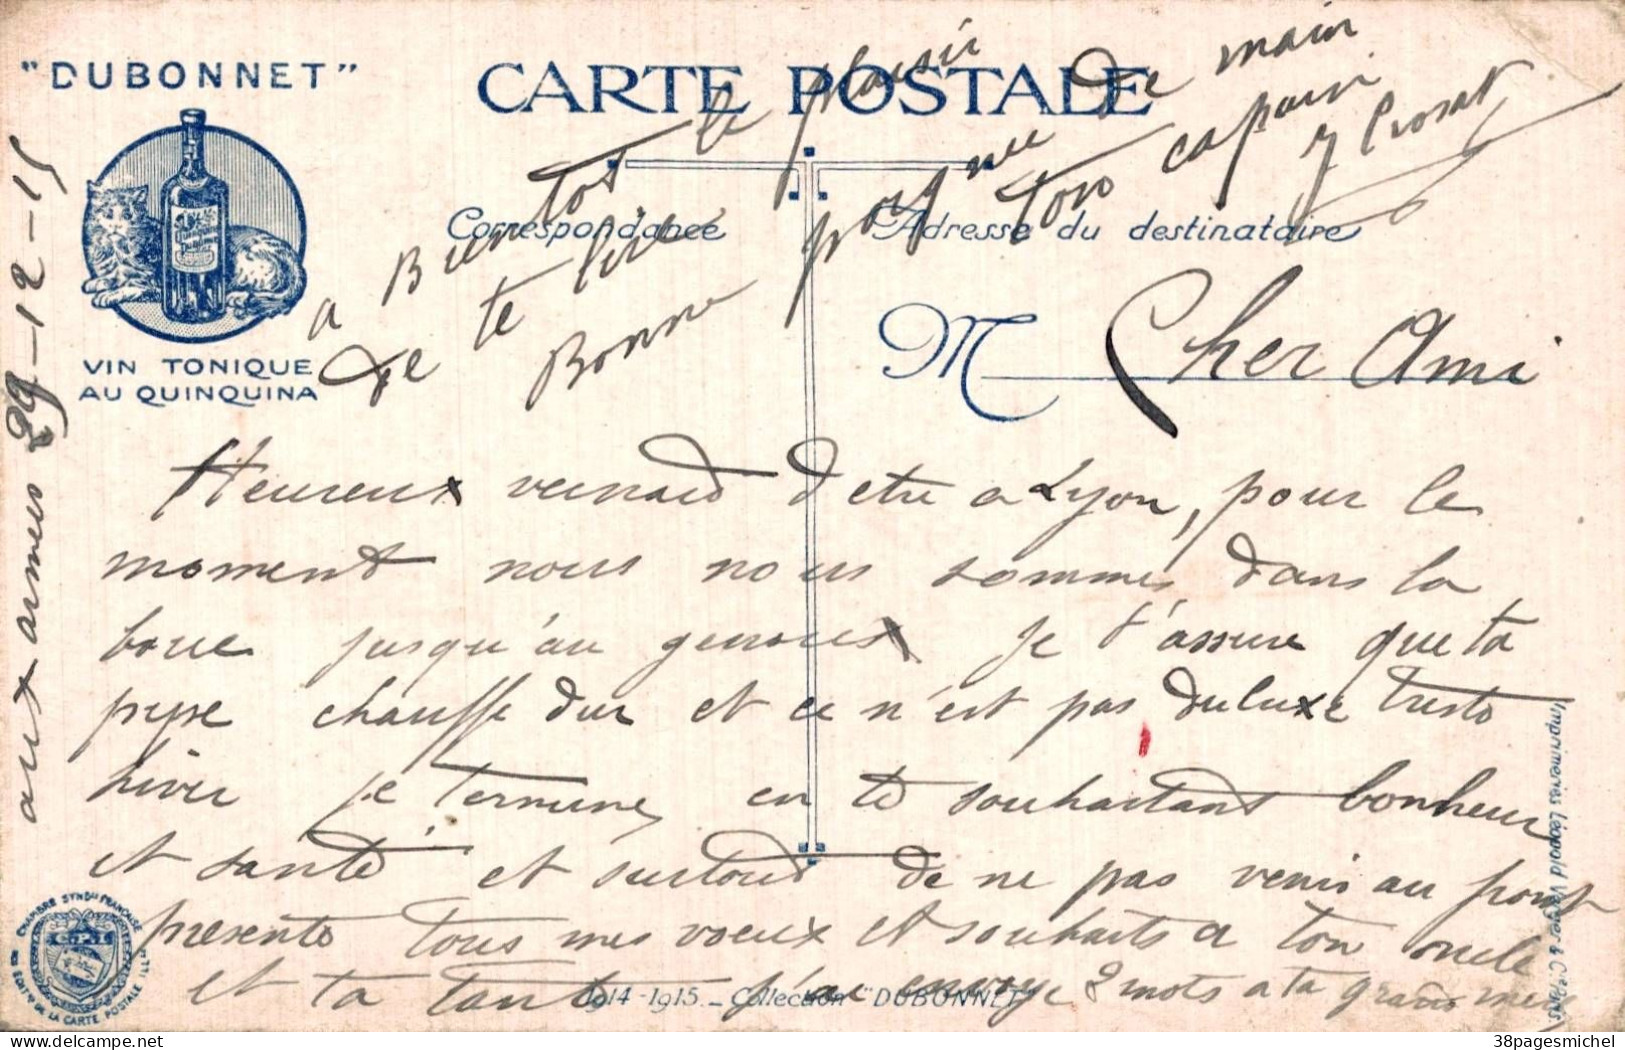 "DUBONNET"
VIN TONIQUE
AU QUINQUINA
CARTE POSTALE
Correspondance
Adresse du destinataire
aux armées 29-12-15
M Cher Ami
Heureux veinard detre a Lyon, pour le
moment nous nous sommes dans la
boue jusqu'au genoux je t'assure que ta
pipe chauffe dur et ce n'est pas du luxe
hiver je termine en te souhaitant bonheur
et santé et surtout de ne pas venir au front
presente tous mes voeux et souhaits a ton oncle
et ta tante j'ai envoye 2 mots a ta grand mere
a Bientot le plaisir
de te lire
Bonne poignee de main
ton copain
1914-1915._Collection "DUBONNET"
Imprimeries Léopold Verger & Cie Paris.
CHAMBRE SYNDle FRANÇAISE
DE LA CARTE POSTALE ILLée
38pagesmichel